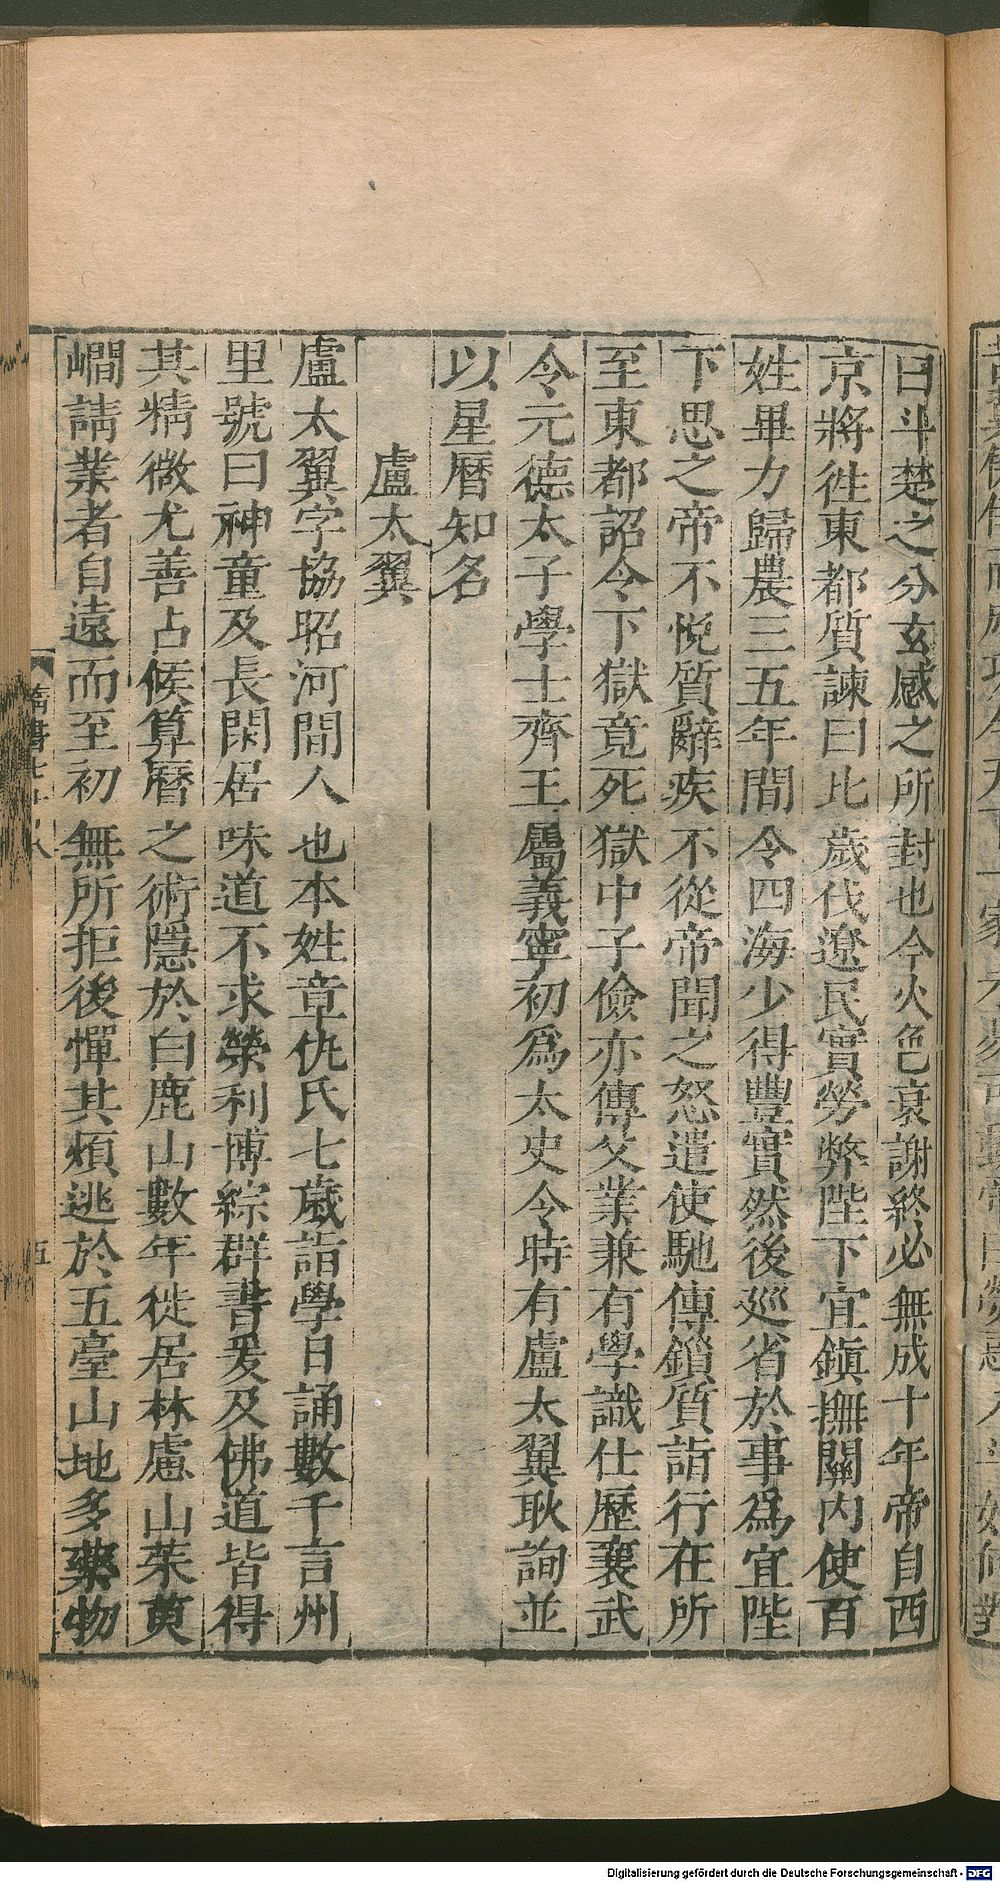 曰斗楚之分玄感之所封也今火色衰謝終必無成十年帝自西
京將徃東都質諫曰比歲伐遼民實勞弊陛下宜鎭撫關內使百
姓畢力歸農三五年間令四海少得豐實然後巡省於事爲宜陛
下思之帝不悅質辭疾不從帝聞之怒遣使馳傳鎖質詣行在所
至東都詔令下獄竟死獄中子儉亦傳父業兼有學識仕歷襄武
令元德太子學士齊王屬義寧初爲太史令時有盧太翼耿詢並
以星曆知名
盧太翼
盧太翼字協昭河間人也本姓章仇氏七歲詣學日誦數千言州
里號曰神童及長閑居味道不求榮利博綜群書爰及佛道皆得
其精微尤善占候算曆之術隱於白鹿山數年徙居林慮山茱萸
㵎請業者自遠而至初無所拒後憚其煩逃於五臺山地多藥物
隋書七十八
五
Digitalisierung gefördert durch die Deutsche Forschungsgemeinschaft - DFG